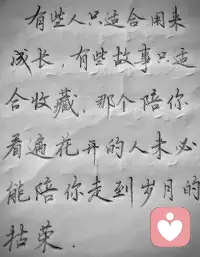 有些人只适合用来
成长，有些故事只适
合收藏，那个陪你
看遍花开的人未必
能陪你走到岁月的
枯荣．